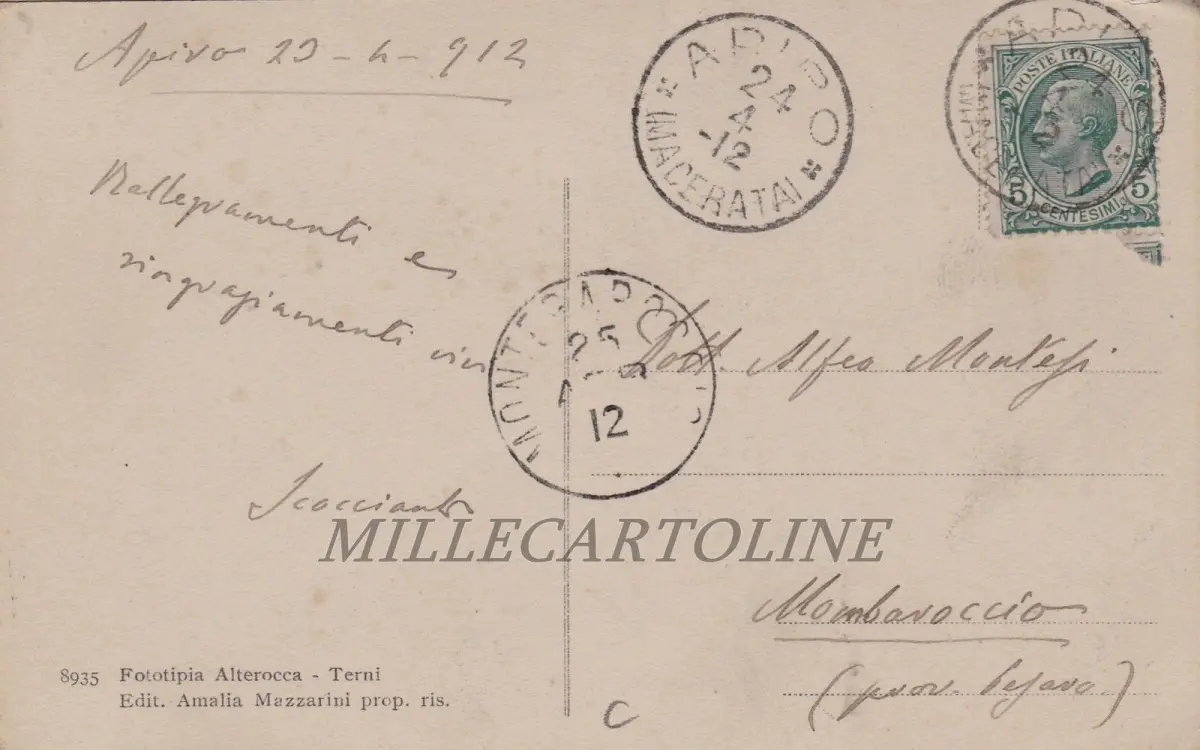 Apiro 23-4-912
APIRO
24
4
-12
(MACERATA)
POSTE ITALIANE
5 5
CENTESIMI
Rallegramenti e
ringraziamenti vivi
25
12
Dott. Alfeo Montesi
MILLECARTOLINE
Mombaroccio
(prov. Pesaro)
8935 Fototipia Alterocca - Terni
Edit. Amalia Mazzarini prop. ris.
C